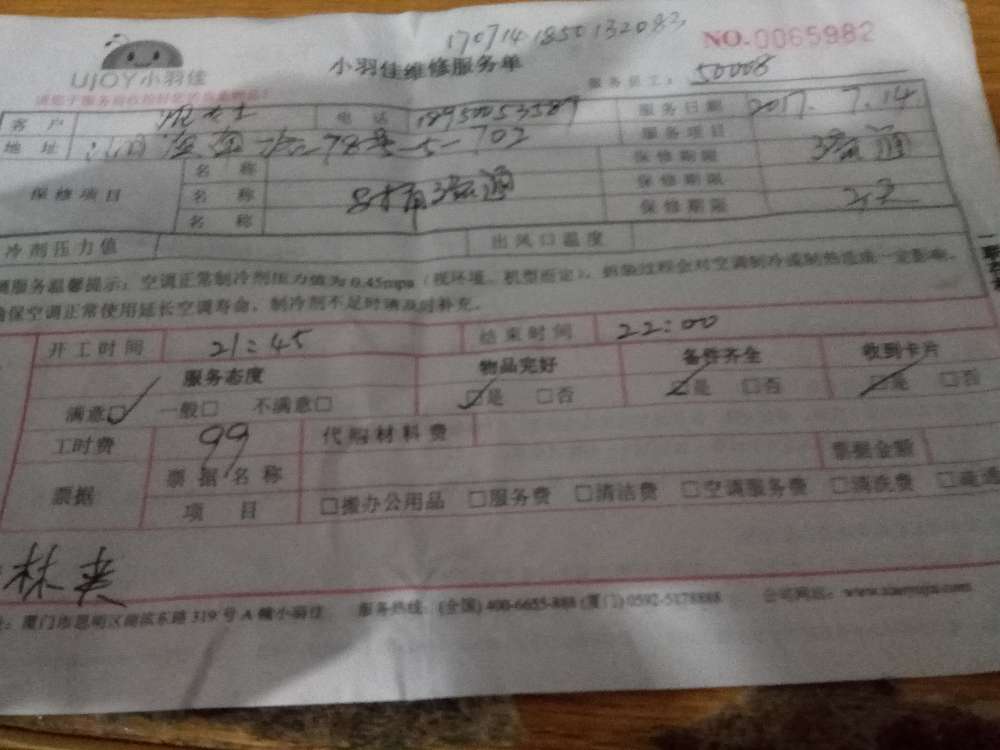 170714185013208
NO.0065982
UJOY小羽佳
小羽佳维修服务单
服务员工: 50008
客 户 女士 电 话 18950053589 服务日期 2017. 7.14
地 址 78号 702 服务项目 疏通
保修项目 名 称 保修期限
名 称 疏通 保修期限
名 称 保修期限
冷剂压力值 出风口温度
服务温馨提示:空调正常制冷剂压力值为0.45mpa(视环境、机型而定),
保空调正常使用延长空调寿命,制冷剂不足时请及时补充。
开工时间 21:45 结束时间 22:00
服务态度 物品完好 备件齐全 收到卡片
满意□ 一般□ 不满意□ □是 □否 □是 □否 □是 □否
工时费 99 代购材料费
票据 票据名称 票据金额
项 目 □搬办公用品 □服务费 □清洁费 □空调服务费 □清洗费 □疏通
林
厦门市思明区湖滨东路319号A幢小羽佳 服务热线:(全国)400-6655-888 (厦门)0592-5178888 公司网址: